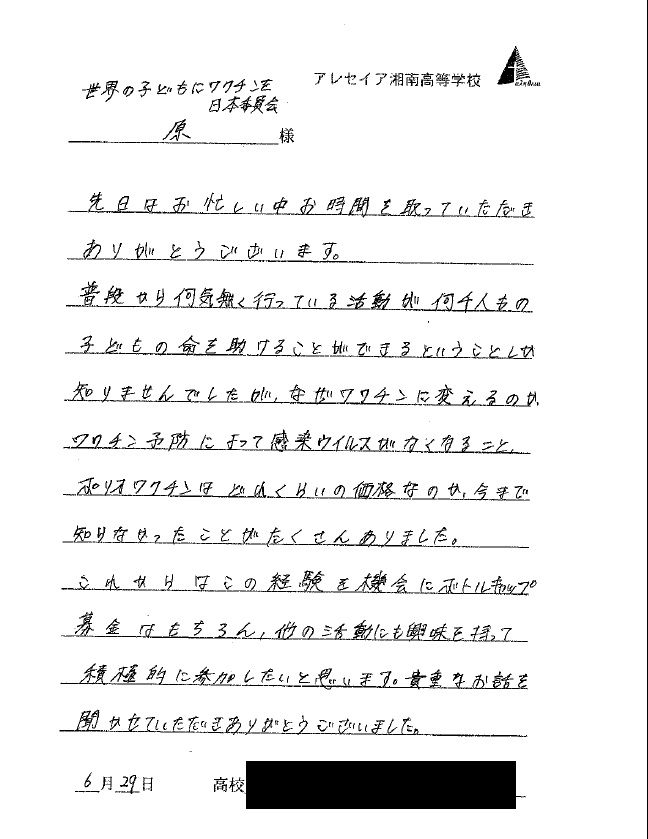 アレセイア湘南高等学校
世界の子どもにワクチンを
日本委員会
原 様
先日はお忙しい中お時間を取っていただき
ありがとうございます。
普段から何気無く行っている活動が何千人もの
子どもの命を助けることができるということしか
知りませんでしたが、なぜワクチンに変えるのか、
ワクチン予防によって感染ウイルスがなくなること、
ポリオワクチンはどれくらいの価格なのか、今まで
知らなかったことがたくさんありました。
これからはこの経験を機会にボトルキャップ
募金はもちろん、他の活動にも興味を持って
積極的に参加したいと思います。貴重なお話を
聞かせていただきありがとうございました。
6月29日 高校